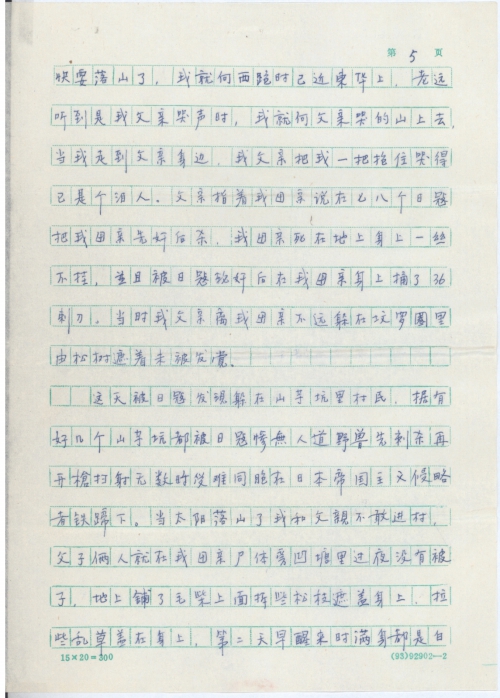 第 5 页
快要落山了，我就向西跑时已近東华上，老远
听到是我父亲哭声时，我就向父亲哭的山上去，
当我走到父亲身边，我父亲把我一把抱住哭得
已是个泪人。父亲指着我田亲说在七八个日寇
把我田亲先奸后杀，我田亲死在地上身上一丝
不挂，並且被日寇强奸后在我田亲身上捅了36
刺刀。当时我父亲离我田亲不远躲在坟罗圈里
由松树遮着未被发覚。
这天被日寇发现躲在山芋坑里村民，据有
好几个山芋坑都被日寇惨無人道野兽先刺杀再
开槍扫射无数时從难同胞在日本帝国主义侵略
者铁蹄下。当太阳落山了我和父親不敢进村，
父子俩人就在我田亲尸体旁凹塘里过夜没有被
子，地上铺了毛柴上面挥些松枝遮盖身上，拉
些乱草盖在身上，第二天早醒来时满身都是白
15×20=300
(95)92902—2